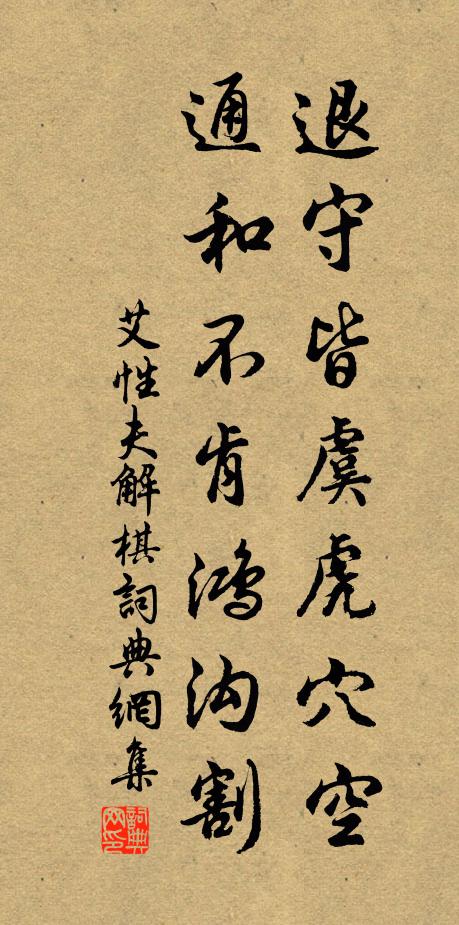 退守皆虞虎穴空
通和不肯鸿沟割
艾性夫解棋詞典網集
詞典網印